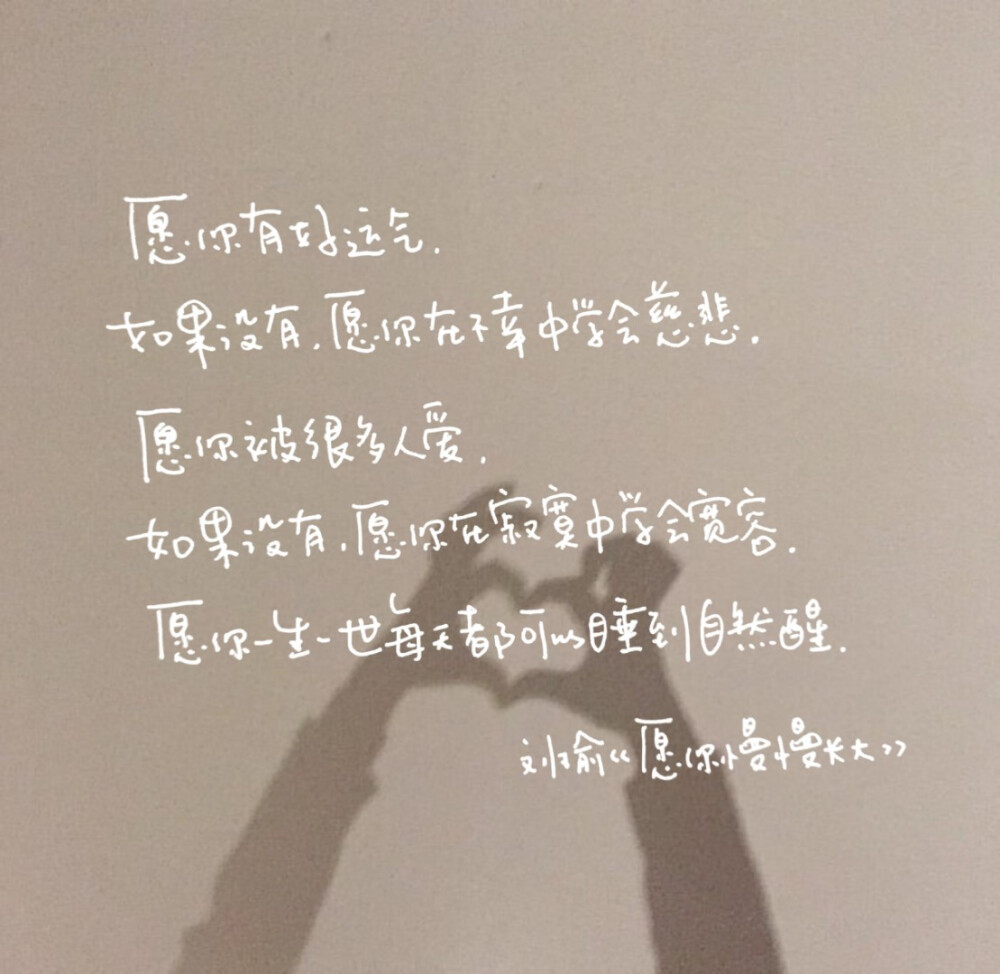 愿你有好运气.
如果没有,愿你在不幸中学会慈悲.
愿你被很多人爱,
如果没有,愿你在寂寞中学会宽容.
愿你一生一世每天都可以睡到自然醒.
刘瑜《愿你慢慢长大》